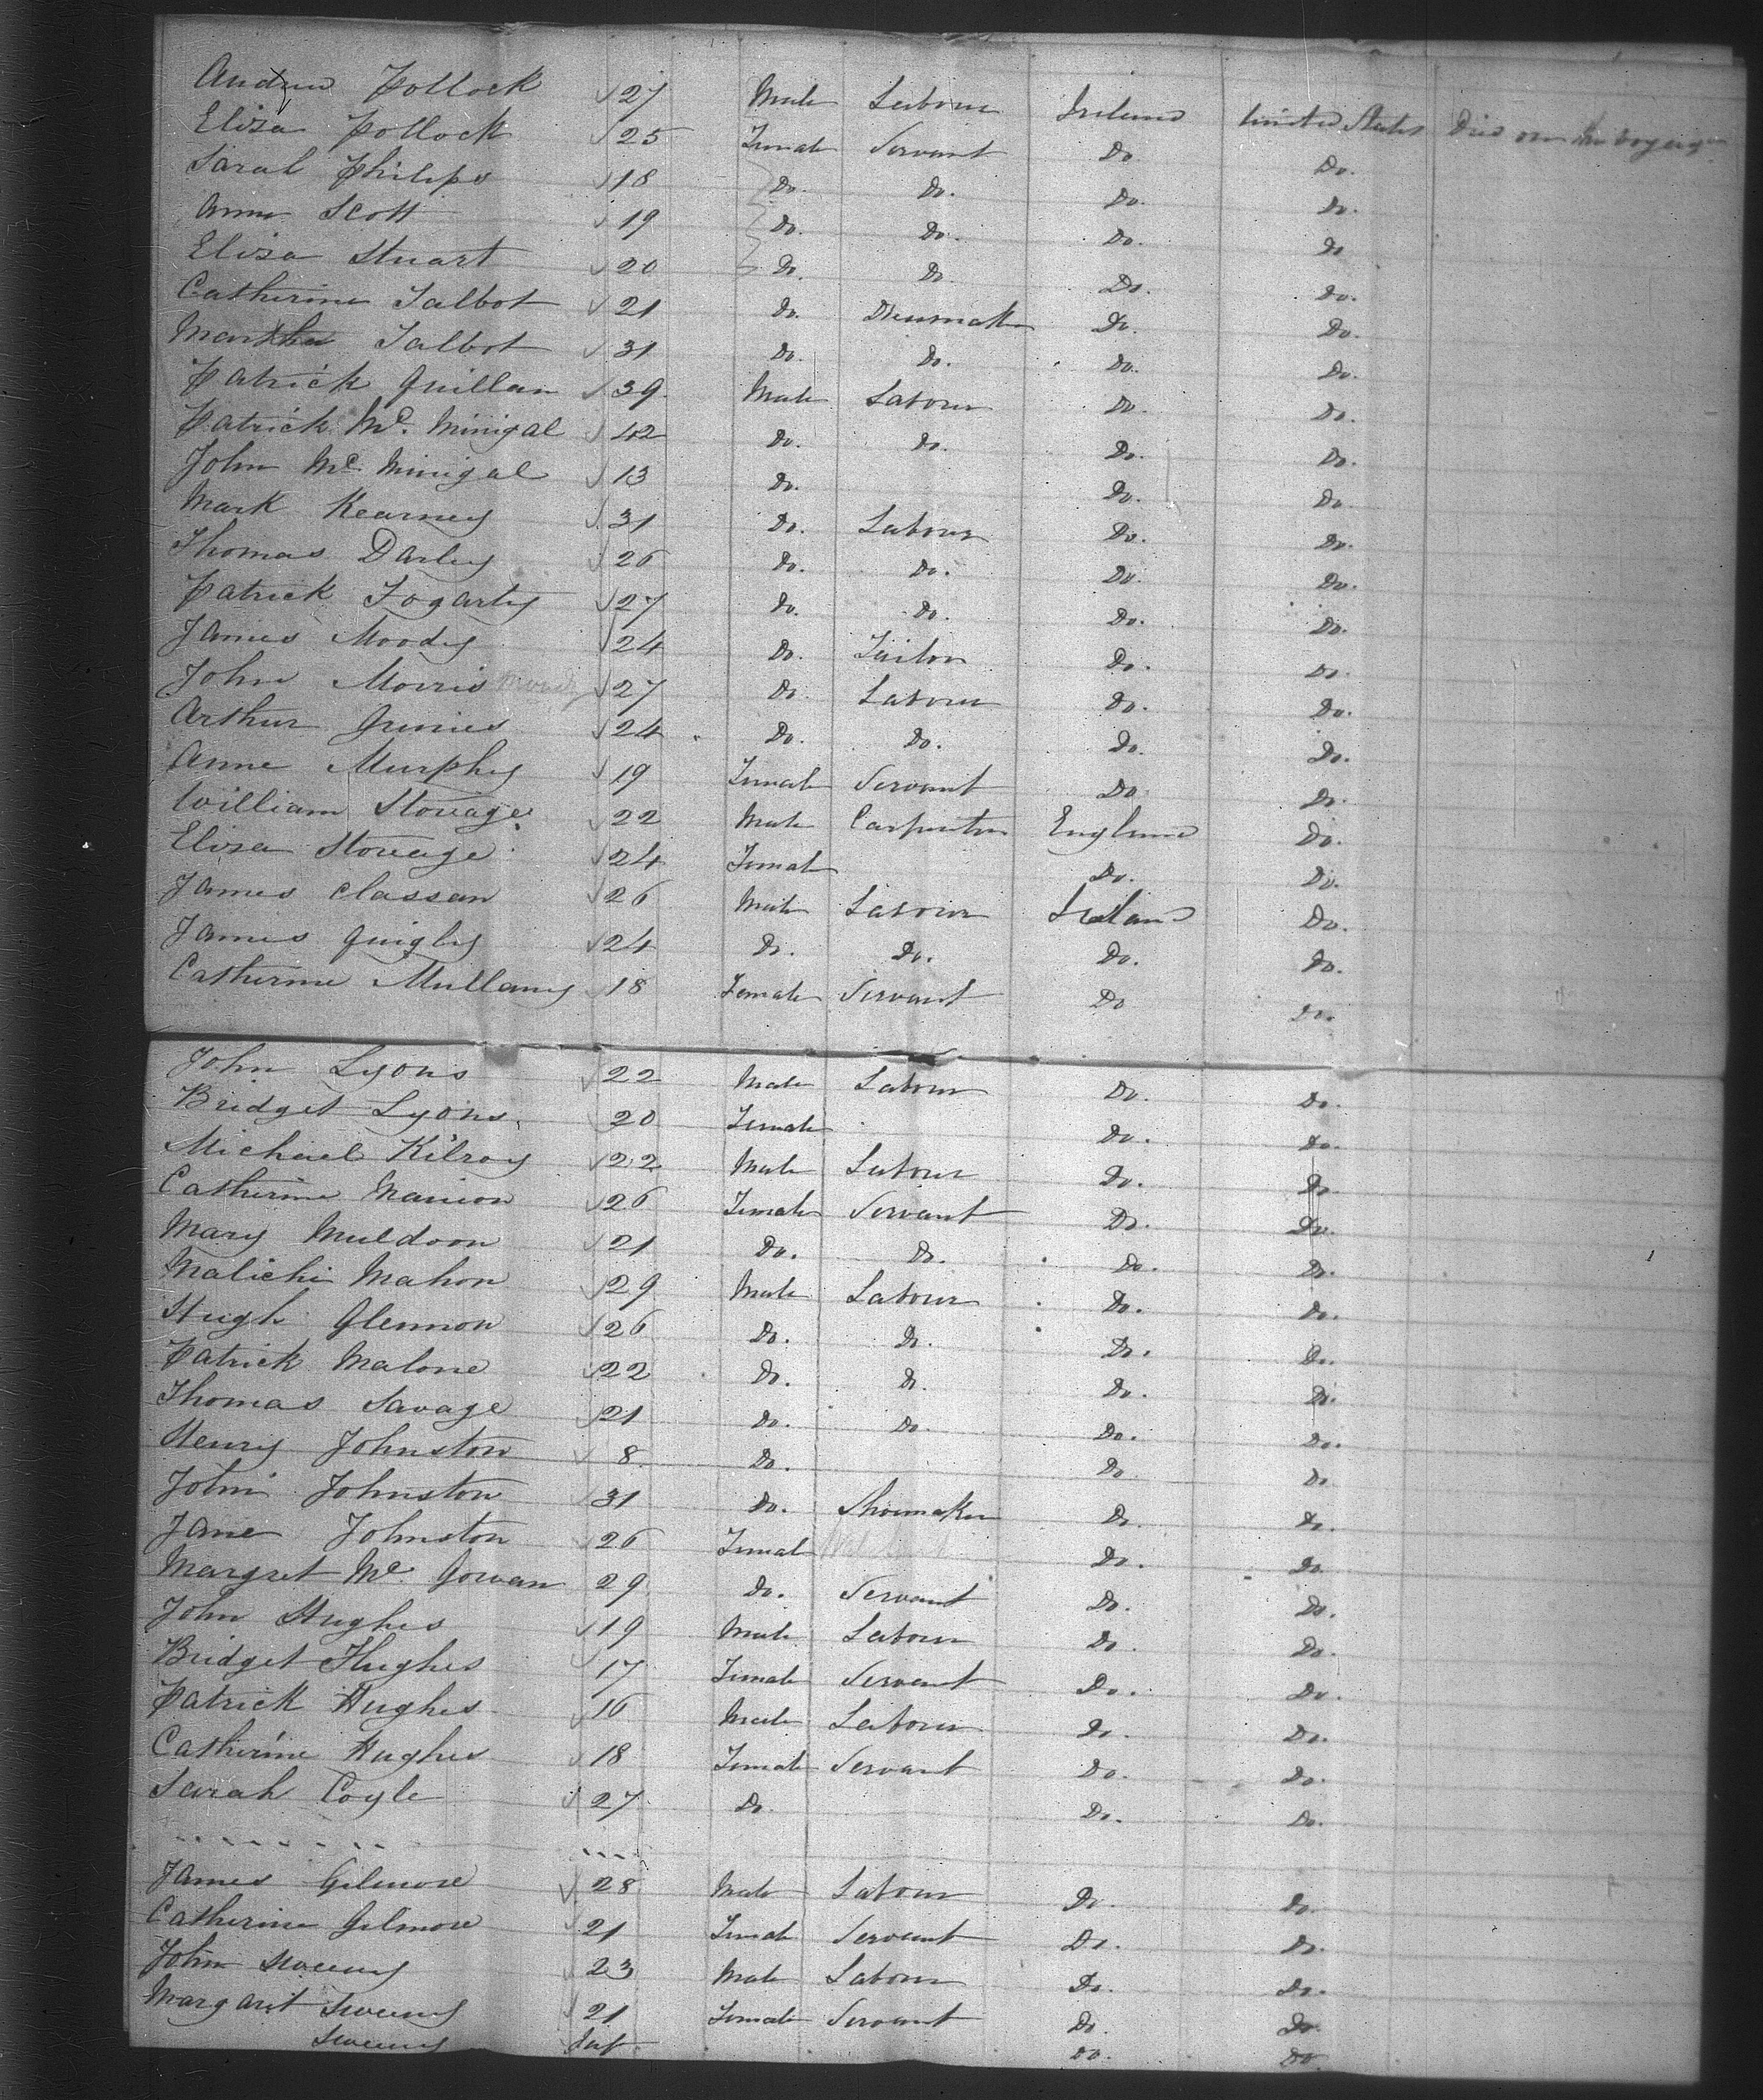 Andrew Pollock 27 Male Labour Ireland United States Died on the voyage
Eliza Pollock 25 Female Servant Do. Do.
Sarah Philips 18 Do. Do. Do. Do.
Ann Scott 19 Do. Do. Do. Do
Eliza Stuart 20 Do. Do Do. Do.
Catherine Talbot 21 Do. Dressmaker Do. Do.
Martha Talbot 31 Do. Do. Do. Do.
Patrick Quillan 39 Male Labour Do. Do.
Patrick Mc. Minigal 42 Do. Do. Do. Do.
John Mc. Minigal 13 Do. Do. Do.
Mark Kearney 31 Do. Labour Do. Do.
Thomas Darley 26 Do. Do. Do. Do.
Patrick Fogarty 27 Do. Do. Do. Do.
James Moody 24 Do. Tailor Do. Do.
John Morris 27 Do. Labour Do. Do.
Arthur 24 Do. Do. Do. Do.
Anne Murphy 19 Female Servant Do. Do.
William Stouage 22 Male Carpenter England Do.
Eliza Stouage 24 Female Do. Do.
James Classan 26 Male Labour Ireland Do.
James Quigly 24 Do. Do. Do. Do.
Catherine Mullany 18 Female Servant Do Do.
John Lyons 22 Male Labour Do. Do.
Bridget Lyons 20 Female Do. Do.
Michael Kilroy 22 Male Labour Do. Do
Catherine Manion 26 Female Servant Do. Do.
Mary Muldoon 21 Do. Do. Do. Do.
Malichi Mahon 29 Male Labour Do. Do.
Hugh Glennon 26 Do. Do. Do. Do.
Patrick Malone 22 Do. Do. Do. Do.
Thomas Savage 21 Do. Do. Do. Do.
Henry Johnston 8 Do. Do Do
John Johnston 31 Do. Shoemaker Do. Do.
Jane Johnston 26 Female Do. Do.
Margret Mc. Gowan 29 Do. Servant Do. Do.
John Hughes 19 Male Labour Do. Do.
Bridget Hughes 17 Female Servant Do. Do.
Patrick Hughes 16 Male Labour Do. Do.
Catherine Hughes 18 Female Servant Do. Do.
Sarah Coyle 27 Do. Do. Do.
James Gilmore 28 Male Labour Do. Do.
Catherine Gilmore 21 Female Servant Do. Do.
John Sweeny 23 Male Labour Do. Do.
Margarit Sweeny 21 Female Servant Do. Do.
Sweeny Inf. Do. Do.